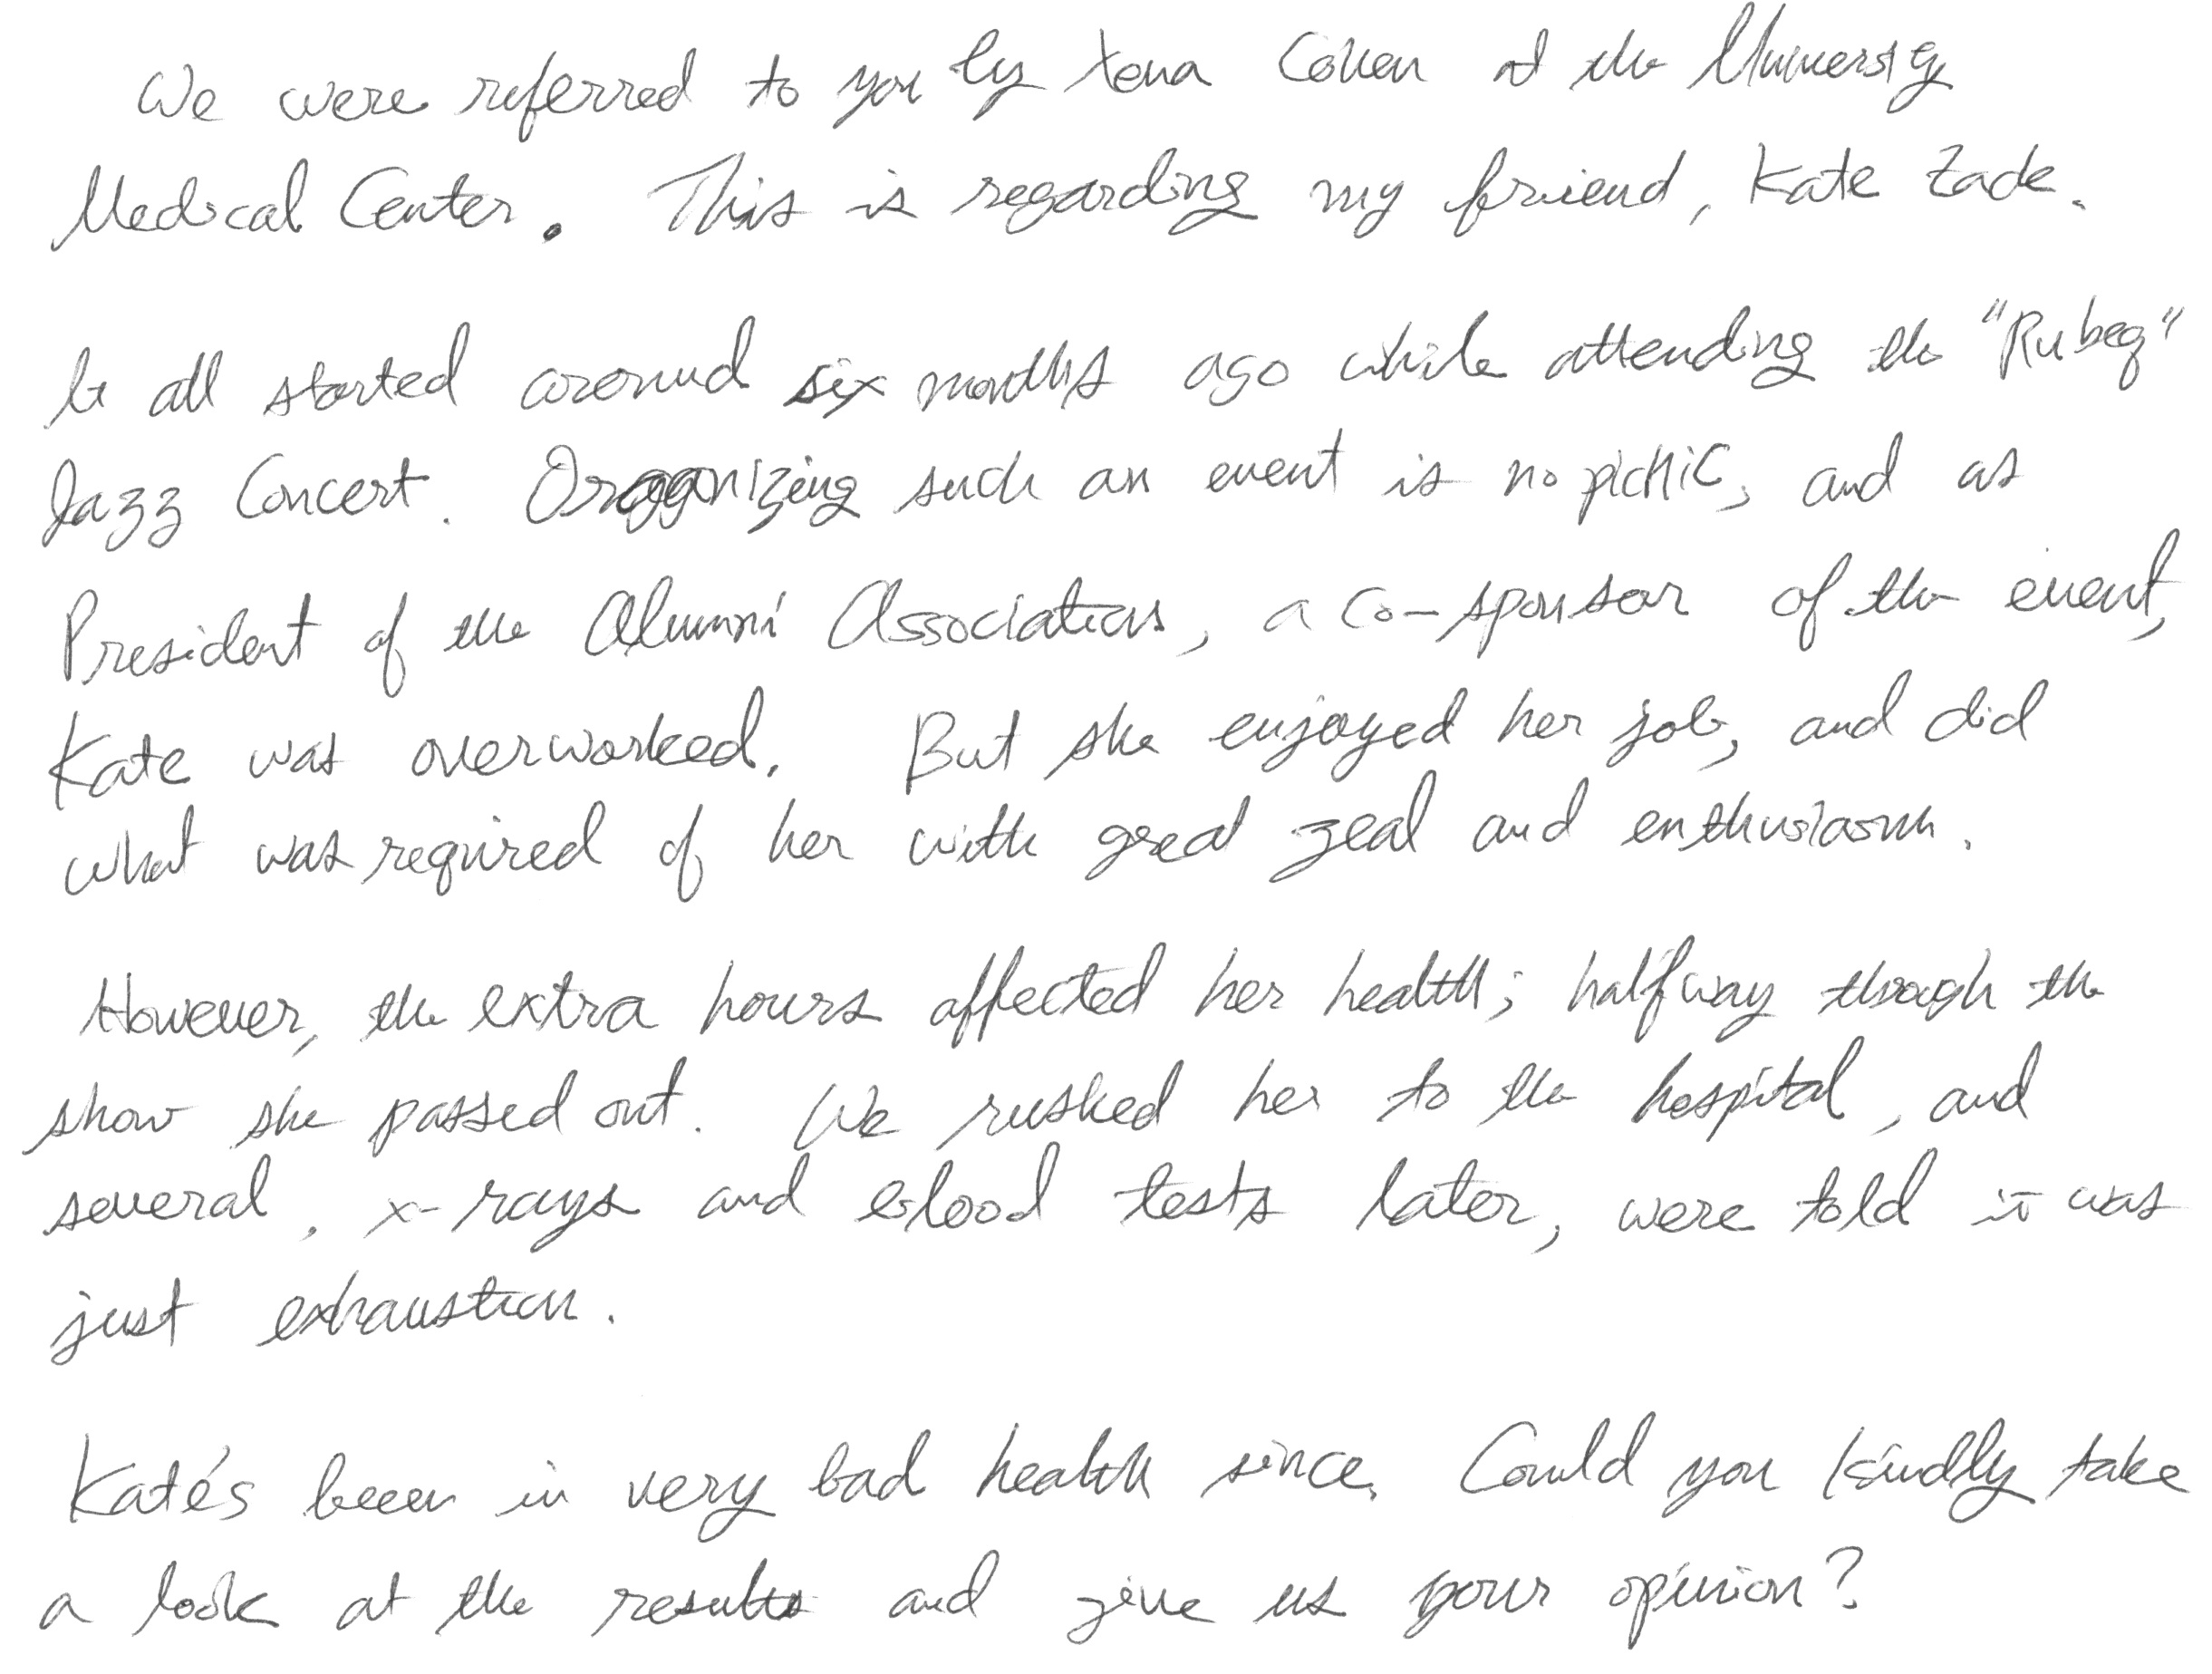 We were referred to you by Xena Cohen at the University
Medical Center. This is regarding my friend, Kate Zade.
It all started around six months ago while attending the "Rubeq"
Jazz Concert. Organizing such an event is no picnic, and as
President of the Alumni Association, a co-sponsor of the event,
Kate was overworked. But she enjoyed her job, and did
what was required of her with great zeal and enthusiasm.
However, the extra hours affected her health; halfway through the
show she passed out. We rushed her to the hospital, and
several, x-rays and blood tests later, were told it was
just exhaustion.
Kate's been in very bad health since. Could you kindly take
a look at the results and give us your opinion?